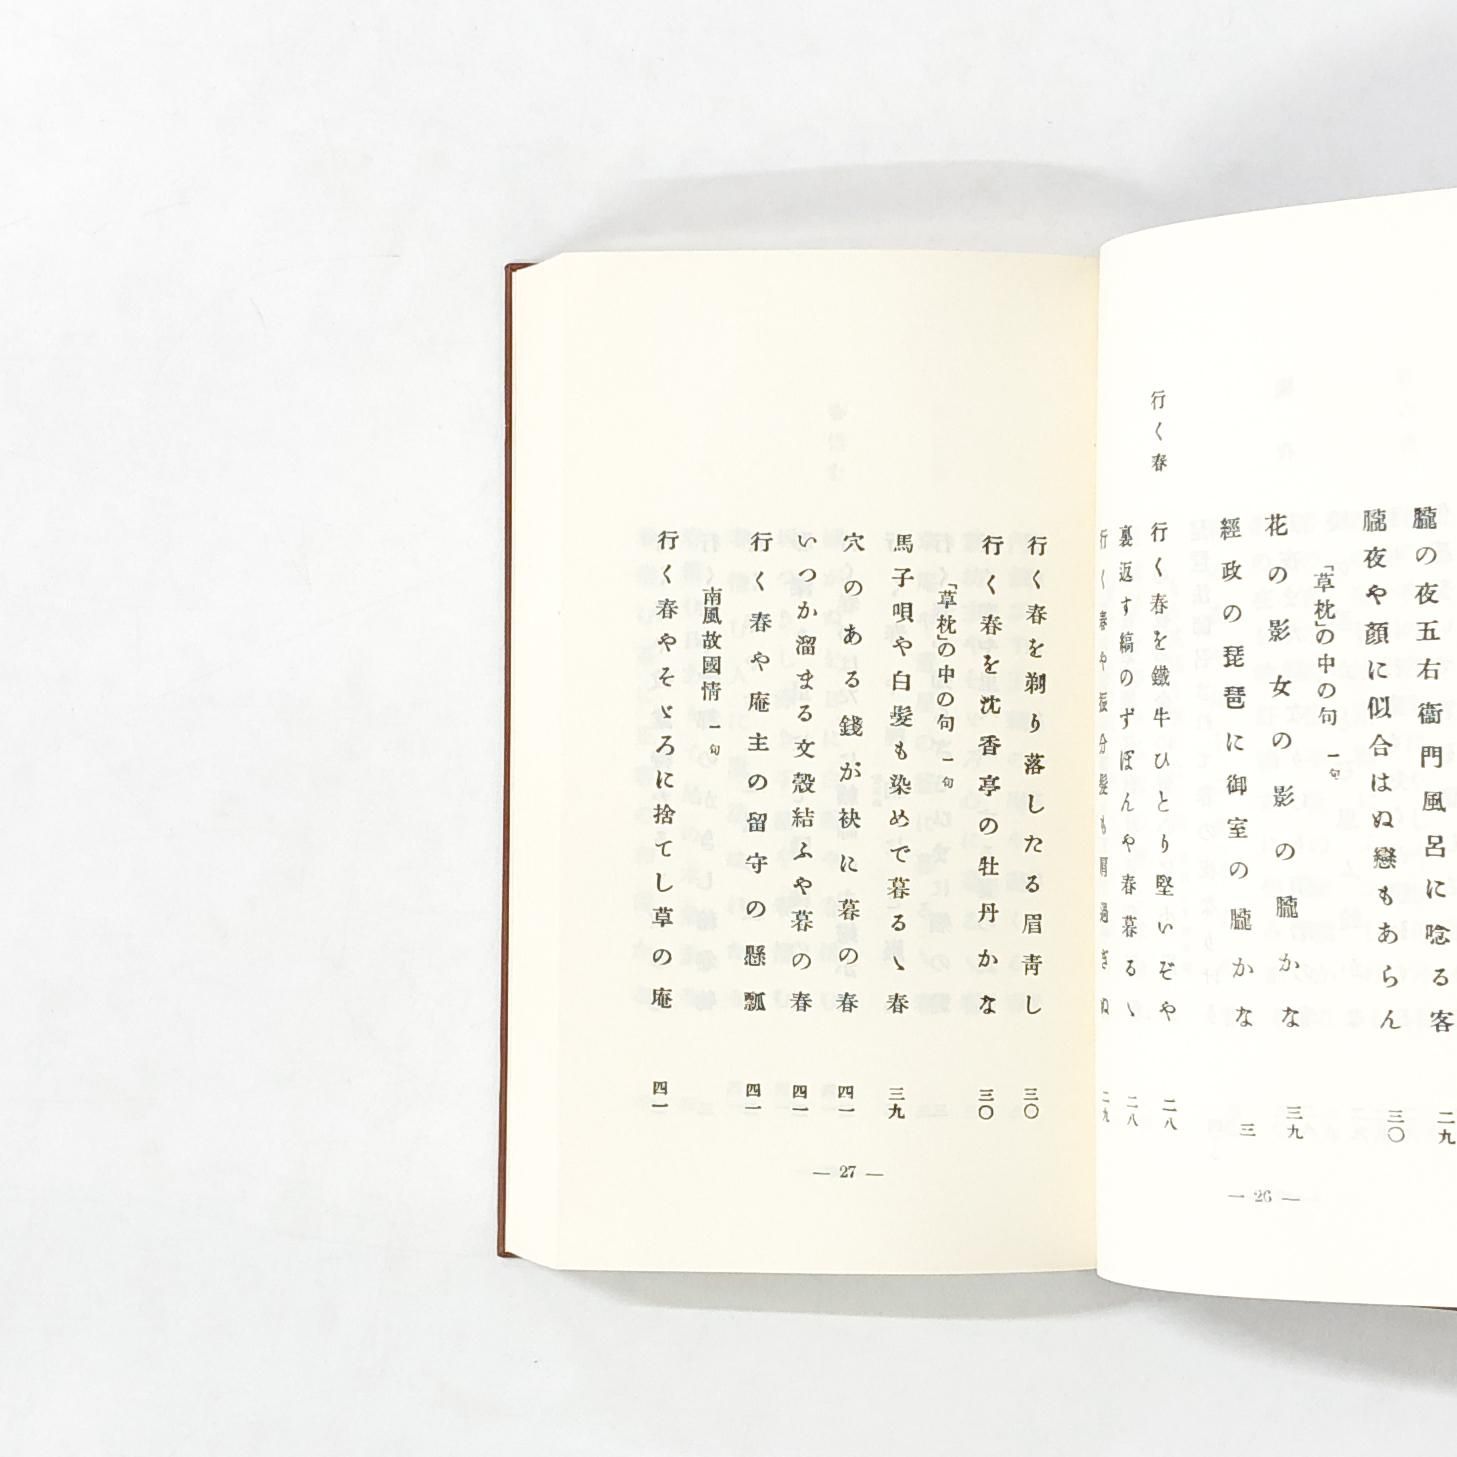 朧の夜五右衞門風呂に唸る客 二九
朧夜や顔に似合はぬ戀もあらん 三〇
「草枕」の中の句 一句
花の影女の影の朧かな 三九
經政の琵琶に御室の朧かな 三
行く春
行く春を鐵牛ひとり堅いぞや 二八
裏返す縞のずぼんや春暮るゝ 二八
行く春や振分髮も肩過ぎぬ 二九
— 26 —
行く春を剃り落したる眉靑し 三〇
行く春を沈香亭の牡丹かな 三〇
「草枕」の中の句 一句
馬子唄や白髮も染めで暮るゝ春 三九
穴のある錢が袂に暮の春 四一
いつか溜まる文殼結ふや暮の春 四一
行く春や庵主の留守の懸瓢 四一
南風故國情 一句
行く春やそゞろに捨てし草の庵 四一
— 27 —